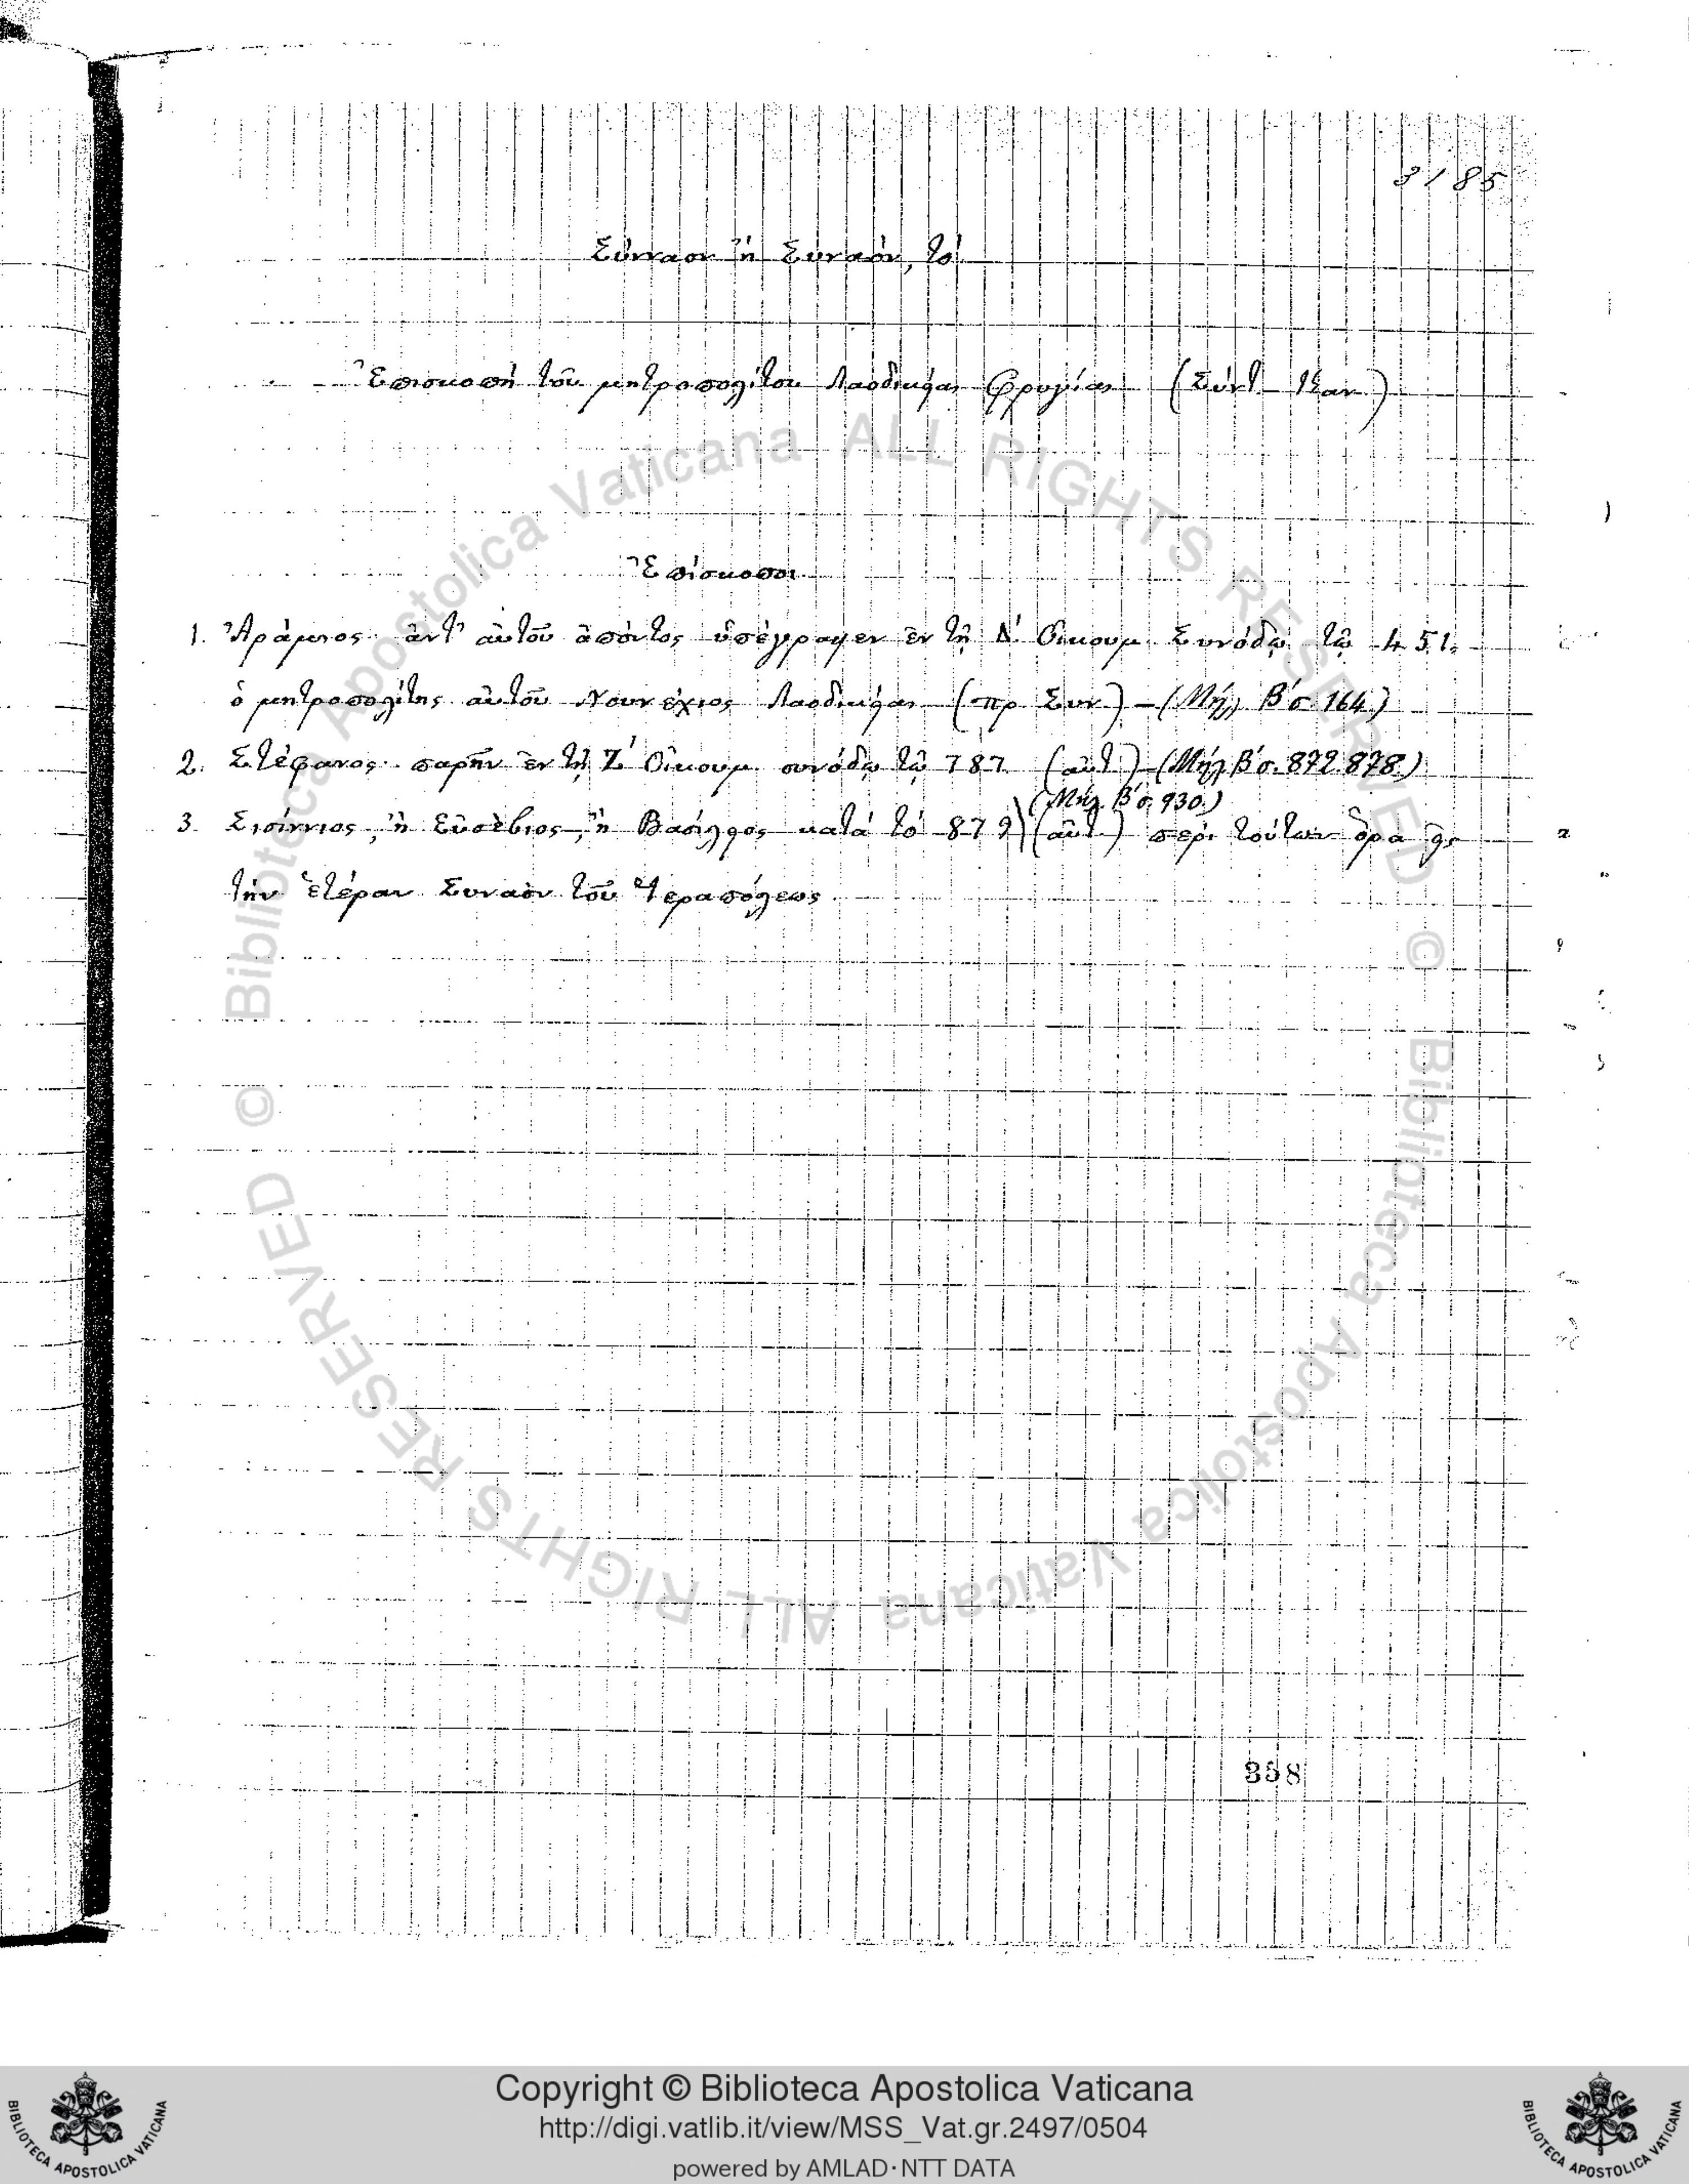 8185
Σύνναον ἢ Συναόν, τὸ
Ἐπισκοπὴ τοῦ μητροπολίτου Λαοδικείας Φρυγίας (Σύντ.
Ἐπίσκοποι
1. ἀντ' αὐτοῦ ἀπόντος ὑπέγραψεν ἐν τῇ Δ´. Οἰκουμ. Συνόδῳ τῷ 451.
ὁ μητροπολίτης αὐτοῦ Νουνέχιος Λαοδικείας (πρ. Συν.) – (Μήλ. Β´ σ. 164.)
2. Στέφανος παρῆν ἐν τῇ Ζ´ Οἰκουμ. συνόδῳ τῷ 787 (αὐτ.) – (Μήλ. Β´ σ. 872. 878.)
(Μήλ. Β´ σ. 930.)
3. Σισίννιος, ἢ Εὐσέβιος, ἢ Βασίλειος κατὰ τὸ 879 (αὐτ.) περὶ τούτων ὅρα εἰς
τὴν ἑτέραν Συναὸν τοῦ Ἱεραπόλεως.
358
© Biblioteca Apostolica Vaticana ALL RIGHTS RESERVED
© Biblioteca Apostolica Vaticana ALL RIGHTS RESERVED
Copyright © Biblioteca Apostolica Vaticana
http://digi.vatlib.it/view/MSS_Vat.gr.2497/0504
powered by AMLAD·NTT DATA
BIBLIOTECA APOSTOLICA VATICANA
BIBLIOTECA APOSTOLICA VATICANA